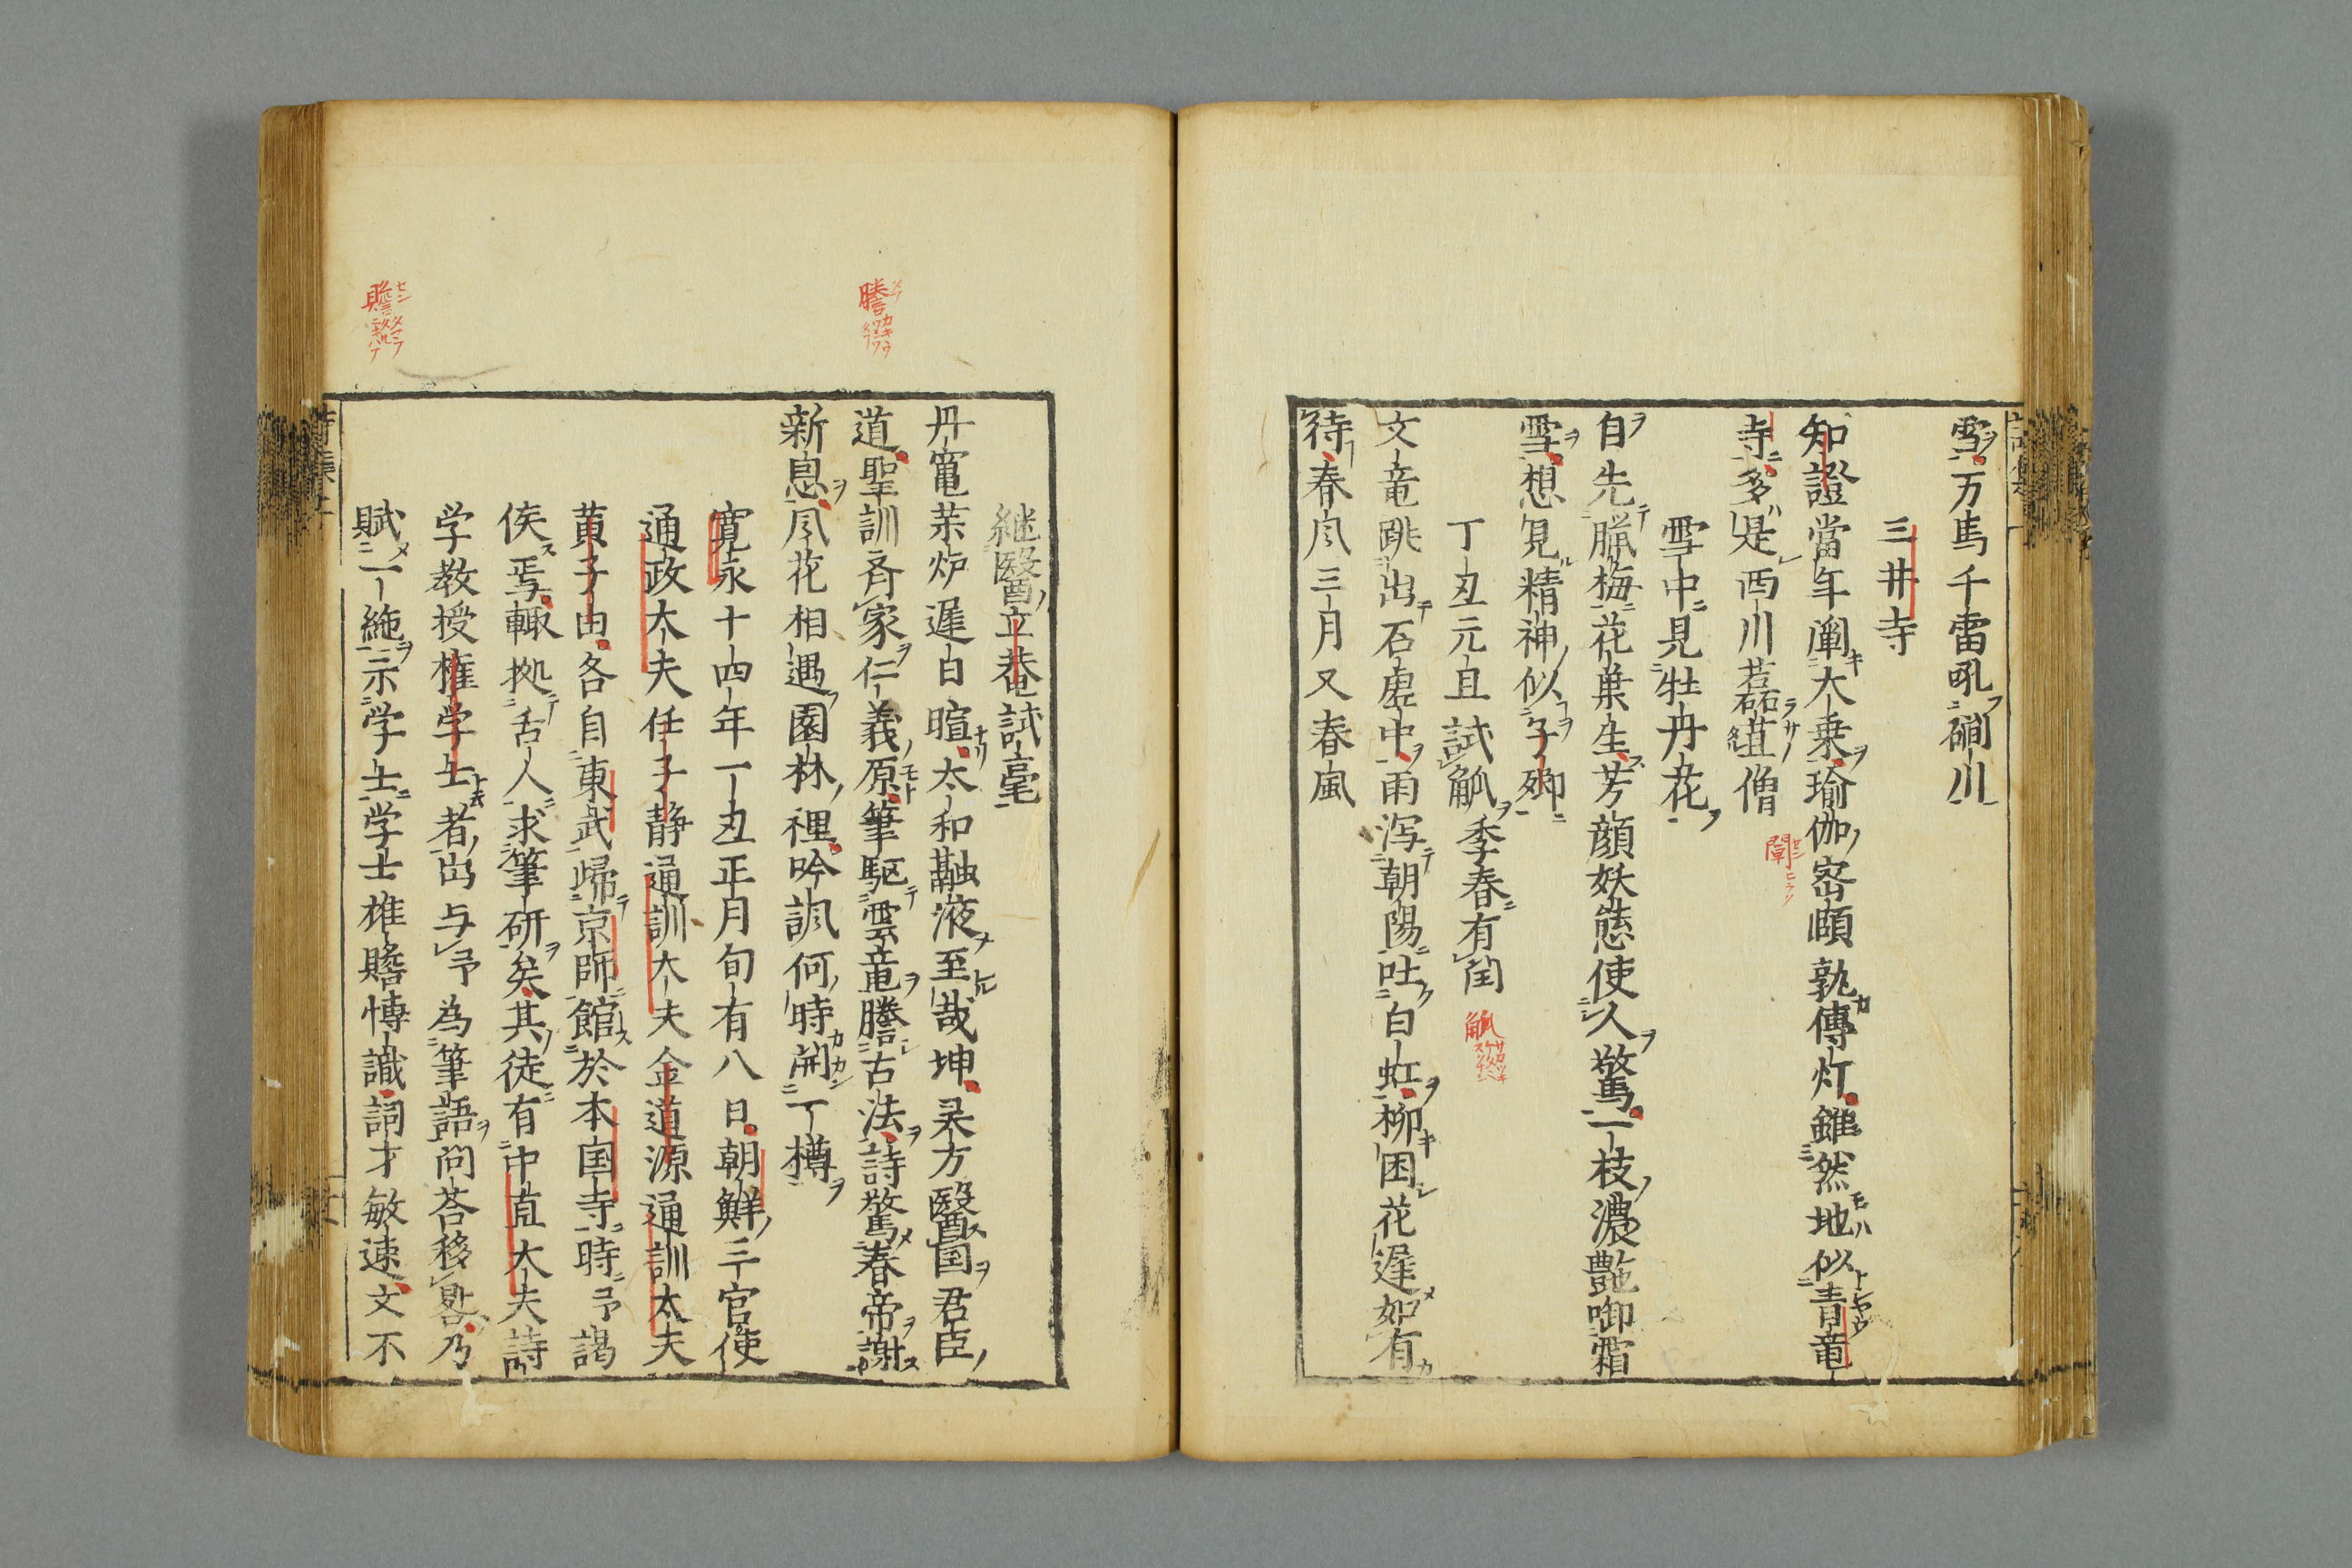 雪万馬千雷吼磵川
三井寺
知證當年闡大乗瑜伽密頤孰傳灯雖然地似青竜
寺多是西川若磊苴僧
雪中見牡丹花
自先臘梅花巣生芳顔妖態使久驚一枝濃艶啣霜
雪想見精神似子卿
丁丑元旦試觚季春有閏
文竜跳出石虚中雨瀉朝陽吐白虹柳困花遅如有
待春风三月又春嵐
継醫立菴試毫
丹竃茶炉遅白暄太和融液至哉坤呆方醫国君臣
道聖訓斉家仁義原筆駆雲竜謄古法詩驚春帝謝
新息风花相遇園林裡吟諷何時開一樽
寛永十四年丁丑正月旬有八日朝鮮三官使
通政太夫任子静通訓太夫金道源通訓太夫
黄子由各自東武帰京師館於本国寺時予謁
俟焉輙拠舌人求筆研矣其徒有中直大夫詩
学教授権学士者出与予為筆語問荅移晷乃
賦一絁示学士学士雄贍博識詞才敏速文不